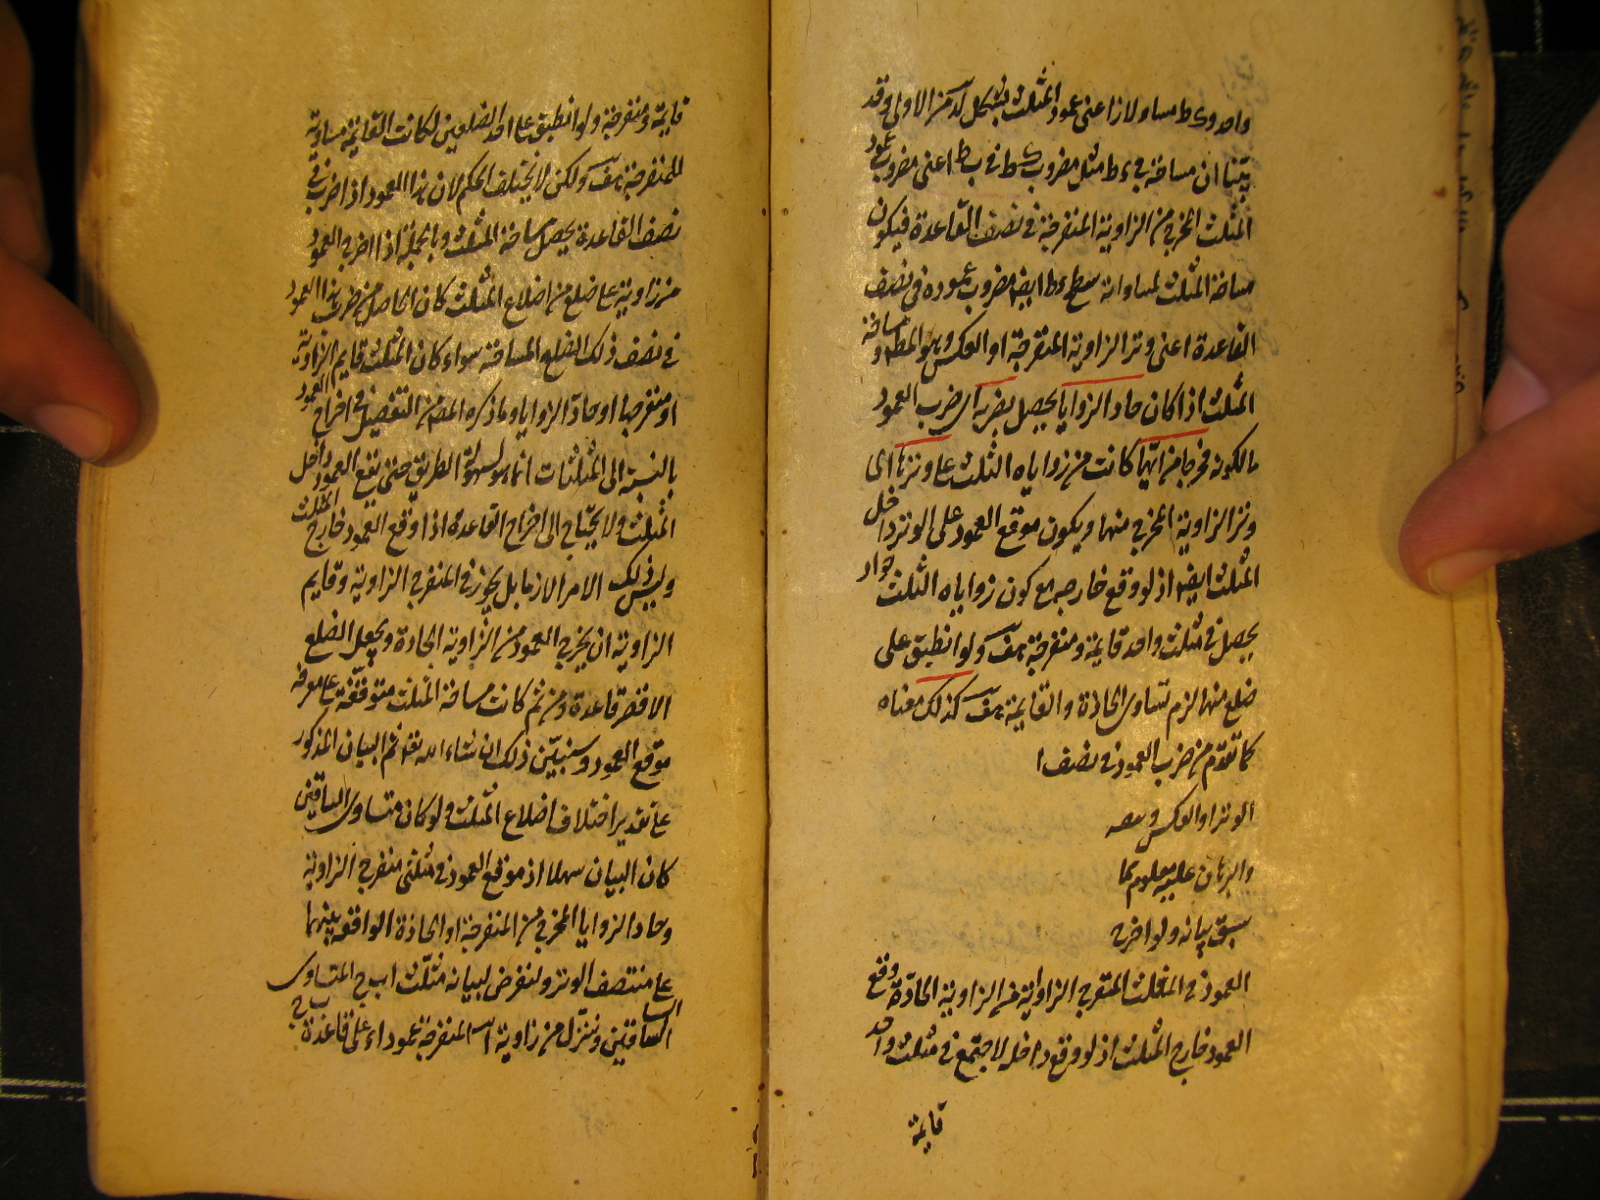 واحد و ء ط مساو لازا اعنى عمود المثلث بشكل لد من الاولى وقد
بيّنا ان مساحة فى ء ط مثل مضروب ء ط فى ب ط اعنى مضروب عمود
المثلث المخرج من الزاوية المنفرجة فى نصف القاعدة فيكون
مساحة المثلث لمساواته سطح ء ط ايضه مضروب عموده فى نصف
القاعدة اعنى وتر الزاوية المنفرجة او العكس وهو المط ومساحة
المثلث اذا كان حاد الزوايا يحصل بضربه اى ضرب العمود
مالكونه مخرجا من ايّها كانت من زواياه الثلث على وترها اى
وتر الزاوية المخرج منها ويكون موقع العمود على الوتر داخل
المثلث ايضه اذ لو وقع خارجه مع كون زواياه الثلث حواد
يحصل فى مثلث واحد قايمة ومنفرجة هف ولو انطبق على
ضلع منها لزم تساوى الحادة والقايمة هف كذلك معناه
كما تقدّم من ضرب العمود فى نصف ا
الوتر او العكس
والبرهان عليه معلوم مما
سبق بيانه ولو اخرج
العمود فى المثلث المنفرج الزاوية من الزاوية الحادّة وقع
العمود خارج المثلث اذ لو وقع داخله لاجتمع فى مثلث واحد
قايمة
قايمة ومنفرجة ولو انطبق على احد الضلعين لكانت القايمة مساوية
للمنفرجة هف ولكن لا يختلف الحكم لان هذا العمود اذا ضرب فى
نصف القاعدة يحصل مساحة المثلث وبالجملة اذا اخرج العمود
من زاوية على ضلع من اضلاع المثلث كان الحاصل من ضرب هذا العمود
فى نصف ذلك الضلع المساحة سواء كان المثلث قايم الزاوية
او منفرجها او حادّ الزوايا وما ذكره المص من التفصيل فى اخراج العمود
بالنسبة الى المثلثات انما هو لسهولة الطريق حتى يقع العمود داخل
المثلث ولا يحتاج الى اخراج القاعدة اذا وقع العمود خارج المثلث
وليس ذلك الامر لازما بل يجوز فى المنفرج الزاوية وقايم
الزاوية ان يخرج العمود من الزاوية الحادة ويجعل الضلع
الاقصر قاعدة ومن ثم كانت مساحة المثلث متوقفة على معرفة
موقع العمود وسنبيّن ذلك ان شاء الله تعه ثم البيان المذكور
على تقدير اختلاف اضلاع المثلث ولو كان متساوى الساقين
كان البيان سهلا اذ موقع العمود فى مثلثى منفرج الزاوية
وحاد الزوايا المخرج من المنفرجة او الحادة الواقعه بينهما
على منتصف الوتر ولنفرض لبيانه مثلّث ا ب ج المتساوى
الساقين وننزّل من زاوية ا المنفرجة عمود ا ء على قاعدة ب ج